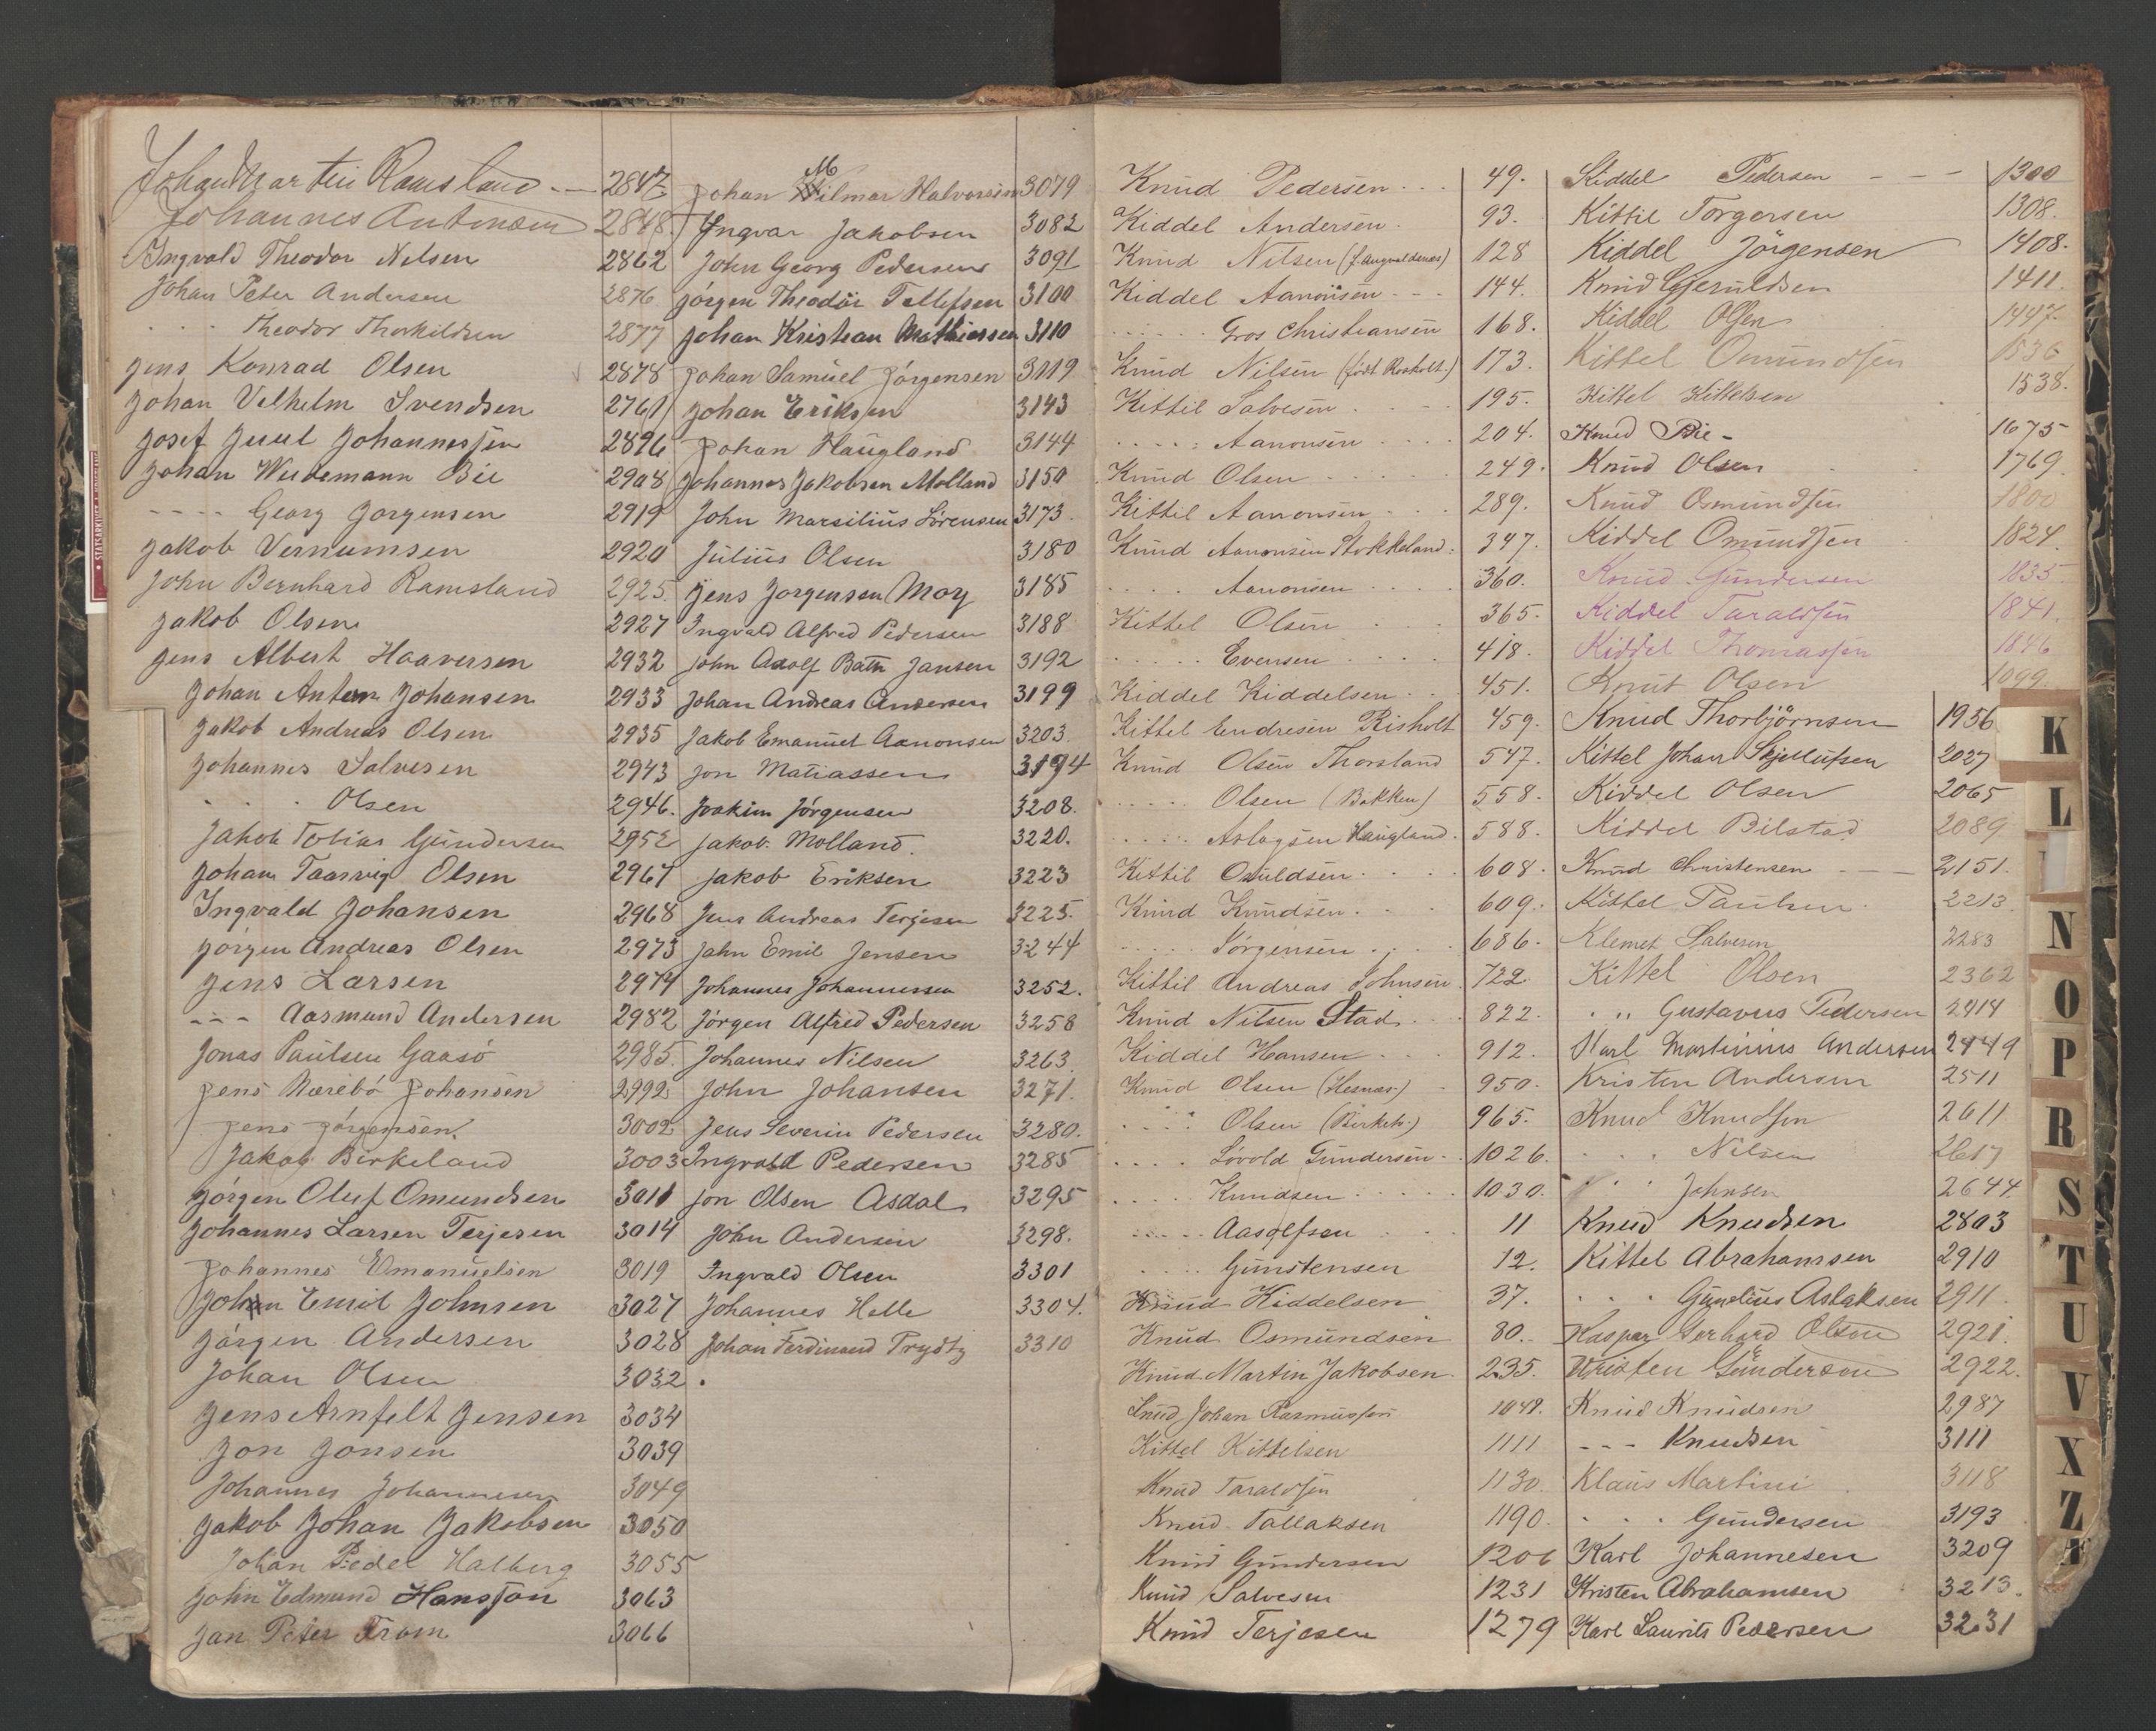 Johan Martin Ramsland - - 2847
Johannes Antonsen 2848
Ingvald Theodor Nilsen 2862
Johan Peter Andersen 2876
. . . Theodor Thorkildsen 2877
Jens Konrad Olsen 2878
Johan Vilhelm Svendsen 2761
Josef Juul Johannessen 2896
Johan Weidemann Bie 2908
- - - - Georg Jorgensen 2919
Jakob Vernumsen 2920
John Bernhard Ramsland 2925.
Jakob Olsen 2927
Jens Albert Haaversen 2932
Johan Anton Johansen 2933
Jakob Andreas Olsen 2935
Johannes Salvesen 2943
. . . Olsen 2946.
Jakob Tobias Gundersen 2952
Johan Taarvig Olsen 2967
Ingvald Johansen 2968
Jörgen Andreas Olsen 2973
Jens Larsen 2974
- - - Aasmund Andersen 2982
Jonas Paulsen Gaasö 2985.
Jens Nærebö Johansen 2992
Jens Jörgensen. 3002
Jakob Birkeland 3003
Jörgen Oluf Omundsen 3011
Johannes Larsen Terjesen 3014
Johannes Emanuelsen 3019
Johan Emil Johnsen 3027
Jörgen Andersen 3028
Johan Olsen 3032
Jens Arnfelt Jensen 3034
Jon Jonsen 3039
Johannes Johannesen 3049
Jakob Johan Jakobsen 3050
Johan Peder Halberg 3055
John Edmund Hansson 3063
Jan Peter Fram 3066
M
Johan Hilmar Halvorsen 3079
Ingvar Jakobsen 3082
John Georg Pedersen 3091
Jörgen Theodor Tellefsen 3100
Johan Kristian Mathiassen 3110
Johan Samuel Jörgensen 3119
Johan Eriksen 3143
Johan Haugland 3144
Johannes Jakobsen Molland 3150
John Marsilius Sörensen 3173.
Julius Olsen 3180
Jens Jorgensen Moy 3185
Ingvald Alfred Pedersen 3188
John Adolf Bath Jansen 3192
Johan Andreas Andersen 3199
Jakob Emanuel Aanonsen 3203.
Jon Matiassen 3194
Joakim Jörgensen 3208.
Jakob Molland. 3220.
Jakob Eriksen 3223
Jens Andreas Terjesen 3225.
John Emil Jensen 3244
Johannes Johannessen 3252.
Jörgen Alfred Pedersen 3258
Johannes Nilsen 3263
John Johansen 3271.
Jens Severin Pedersen 3280.
Ingvald Pedersen 3285
Jon Olsen Asdal 3295
John Andersen 3298.
Ingvald Olsen 3301
Johannes Helle 3304.
Johan Ferdinand Trydtz 3310
Knud Pedersen . . . 49.
Kiddel Andersen. 93.
Knud Nilsen (f. Langvaldenes) 128
Kiddel Aanonsen - - - 144.
. . . . . Gros Christiansen 168.
Knud Nilsen (födt Rosholt.) 173.
Kittil Salvesen . . . 195.
. . . . : Aanonsen . . . . 204.
Knud Olsen . . . . . 249.
Kittil Aanonsen - . . . 289.
Knud Aanonsen Stokkeland. 347.
. . . . Aanonsen . . . . 360.
Kittel Olsen . . . . 365.
. . . . . Evensen . . . . 418.
Kiddel Kiddelsen . . . 451.
Kittel Endresen Risholt 459.
Knud Olsen Thorsland 547.
. . . . . Olsen (Bakken) 558.
. . . . . Aslagsen Haugland. 588.
Kittil Osuldsen . . . . 608.
Knud Knudsen . . . . 609.
. . . . . Jörgensen . . . . 686.
Kittil Andreas Johnsen. 722.
Knud Nilsen Stad . . . 822.
Kiddel Hansen . . . 912.
Knud Olsen (Hesnæs.) . 950.
. . : . Olsen (Birketv.) 965.
. . . . Lövold Gundersen. . 1026.
. . . . . Knudsen . . . . 1030.
. . . . . Aasolfsen . . . 11
. . . . Gunstensen 12.
Knud Kiddelsen 37.
Knud Osmundsen 80.
Knud Martin Jakobsen. 235.
Knud Johan Rasmussen 1048.
Kittel Kittelsen 1111
Knud Taraldsen 1130.
Knud Tallaksen 1190.
Knud Gundersen 1206
Knud Salvesen 1231
Knud Terjesen 1279
Kiddel Pedersen - - - 1300
Kittil Torgersen 1308.
Kiddel Jörgensen 1408.
Knud Gjeruldsen 1411.
Kiddel Olsen 1447
Kittel Omundsen 1536
Kittel Kittelsen 1538.
Knud Bie - 1675
Knud Olsen 1769.
Knud Osmundsen 1800
Kiddel Omundsen 1824.
Knud Gundersen 1835
Kiddel Taraldsen 1841.
Kiddel Thomassen 1846
Knut Olsen 1099.
Knud Thorbjörnsen 1956
Kittel Johan Skjellufsen 2027
Kiddel Olsen 2065
Kiddel Bilstad 2089
Knud Christensen - - 2151.
Kittel Paulsen 2213
Klemet Salvesen 2283
Kittel Olsen 2362
. „ Gustavus Pedersen 2414
Karl Martinius Andersen 2449
Kristen Andersen 2511
Knud Knudsen 2611
. . . Nilsen 2617
. . . Johnsen 2644
Knud Knudsen 2803
Kittel Abrahamsen 2910
. . . Gundius Aslaksen 2911
Kaspar Gerhard Olsen 2921.
Kristen Gunderson 2922.
Knud Knudsen 2987
- - - Knudsen 3111
Klaus Martini 3118
. . . Gundersen 3193
Karl Johannesen 3209
Kristen Abrahamsen 3213.
Karl Laurits Pedersen 3231
K
L
N
O
P
R
S
T
U
V
X
Z